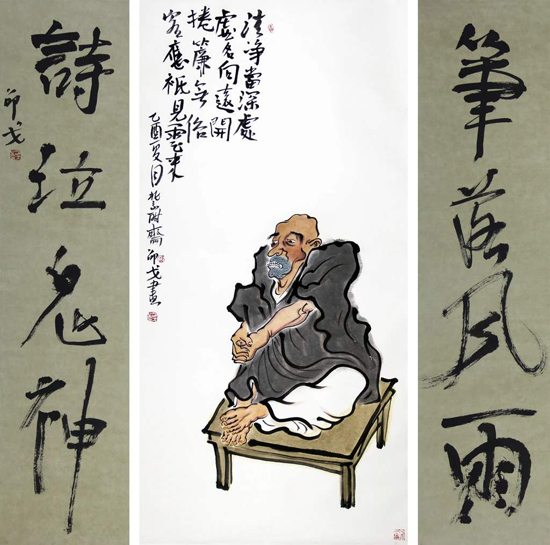 筆落風雨
清淨當深處
虛名向遠開
捲簾無俗
客應祇見雲來
乙酉夏月
齋
戈畫
詩泣鬼神
戈